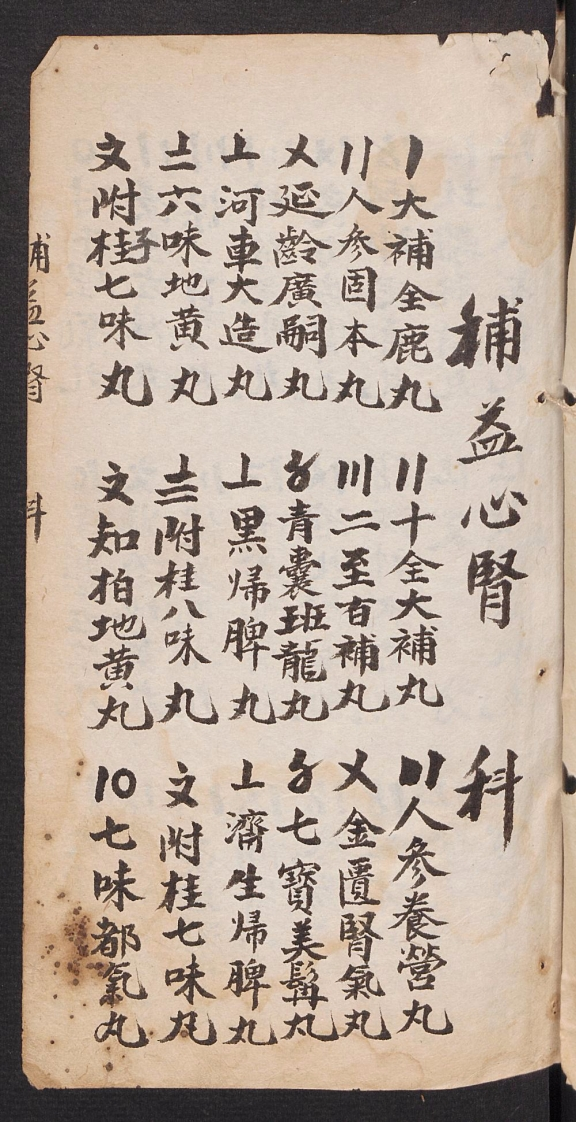 補益心腎科
〡大補全鹿丸 〢十全大補丸 〣人參養營丸
〢人參固本丸 〣二至百補丸 〤金匱腎氣丸
〤延齡廣嗣丸 〥青囊班龍丸 〥七寶美髯丸
〦河車大造丸 〦黑歸脾丸 〦濟生歸脾丸
〧六味地黄丸 〨附桂八味丸 〩附桂七味丸
〩附子桂七味丸 〩知柏地黄丸 10七味都氣丸
補益心腎 科